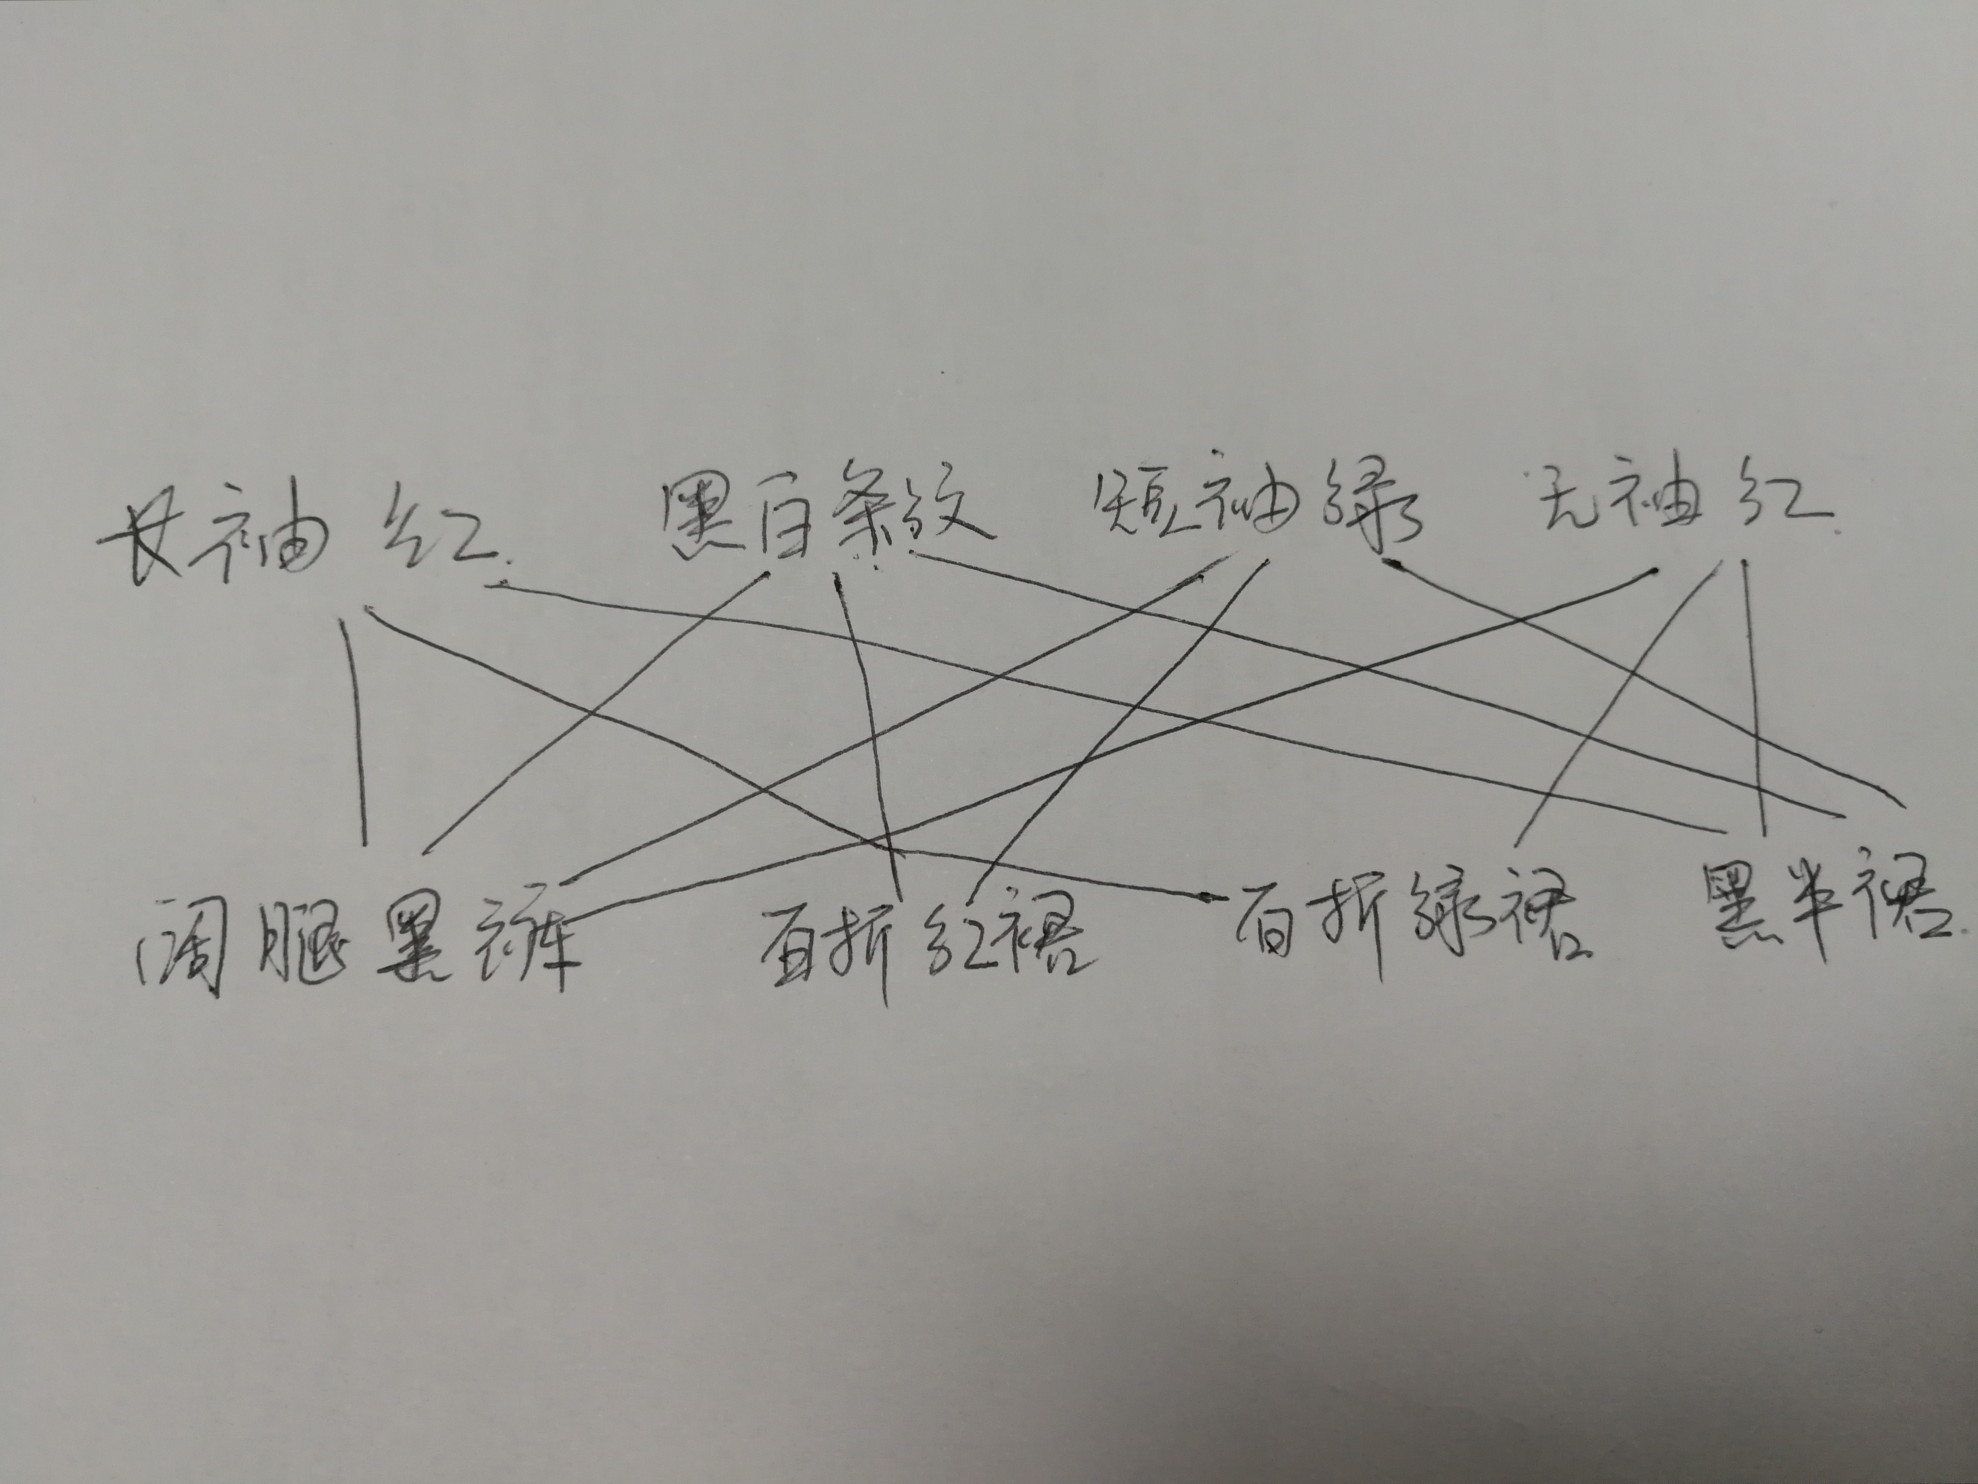 长袖红 黑白条纹 短袖绿 无袖红
阔腿黑裤 百折红裙 百折绿裙 黑半裙